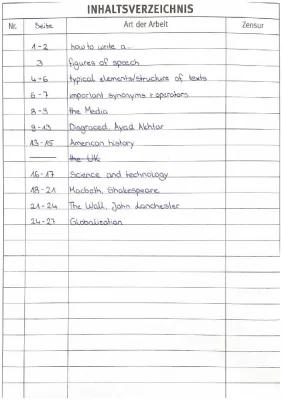 INHALTSVERZEICHNIS
Nr. Seite Art der Arbeit Zensur
1-2 how to write a...
3 figures of speech
4-6 typical elements/structure of texts
6-7 important synonyms + operators
8-9 the Media
9-13 Disgraced, Ayad Akhtar
13-15 American history
the UK
16-17 Science and technology
18-21 Macbeth, Shakespeare
21-24 The Wall, John Lanchester
24-27 Globalization